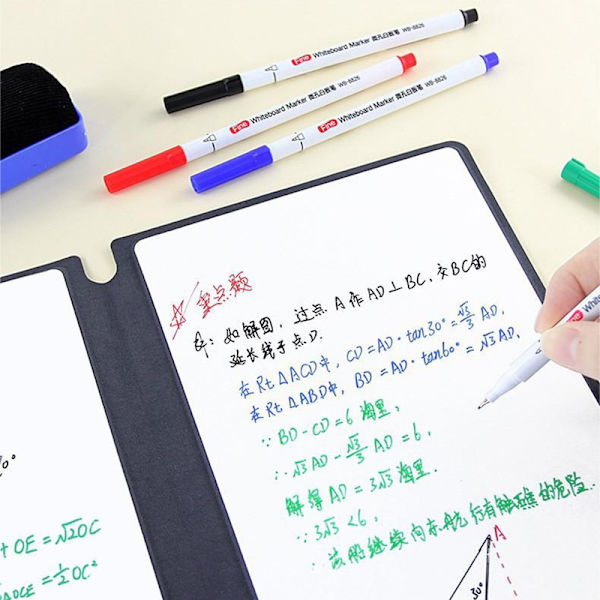 Fine Whiteboard Marker 微孔白板笔 WB-8826
Fine Whiteboard Marker 微孔白板笔 WB-8826
Fine Whiteboard Marker 微孔白板笔 WB-8826
0°
+ OE = √2OC
= ½OC²
重点题
如解图，过点 A 作 AD⊥BC，交BC的
延长线于点D.
在Rt△ACD中，CD=AD·tan30°=√3/3 AD，
在Rt△ABD中，BD=AD·tan60°=√3AD，
∵BD-CD=6 海里，
∴√3AD-√3/3 AD=6，
解得AD=3√3海里.
∵3√3<6，
∴该船继续向东航行有触礁的危险.
A
30°